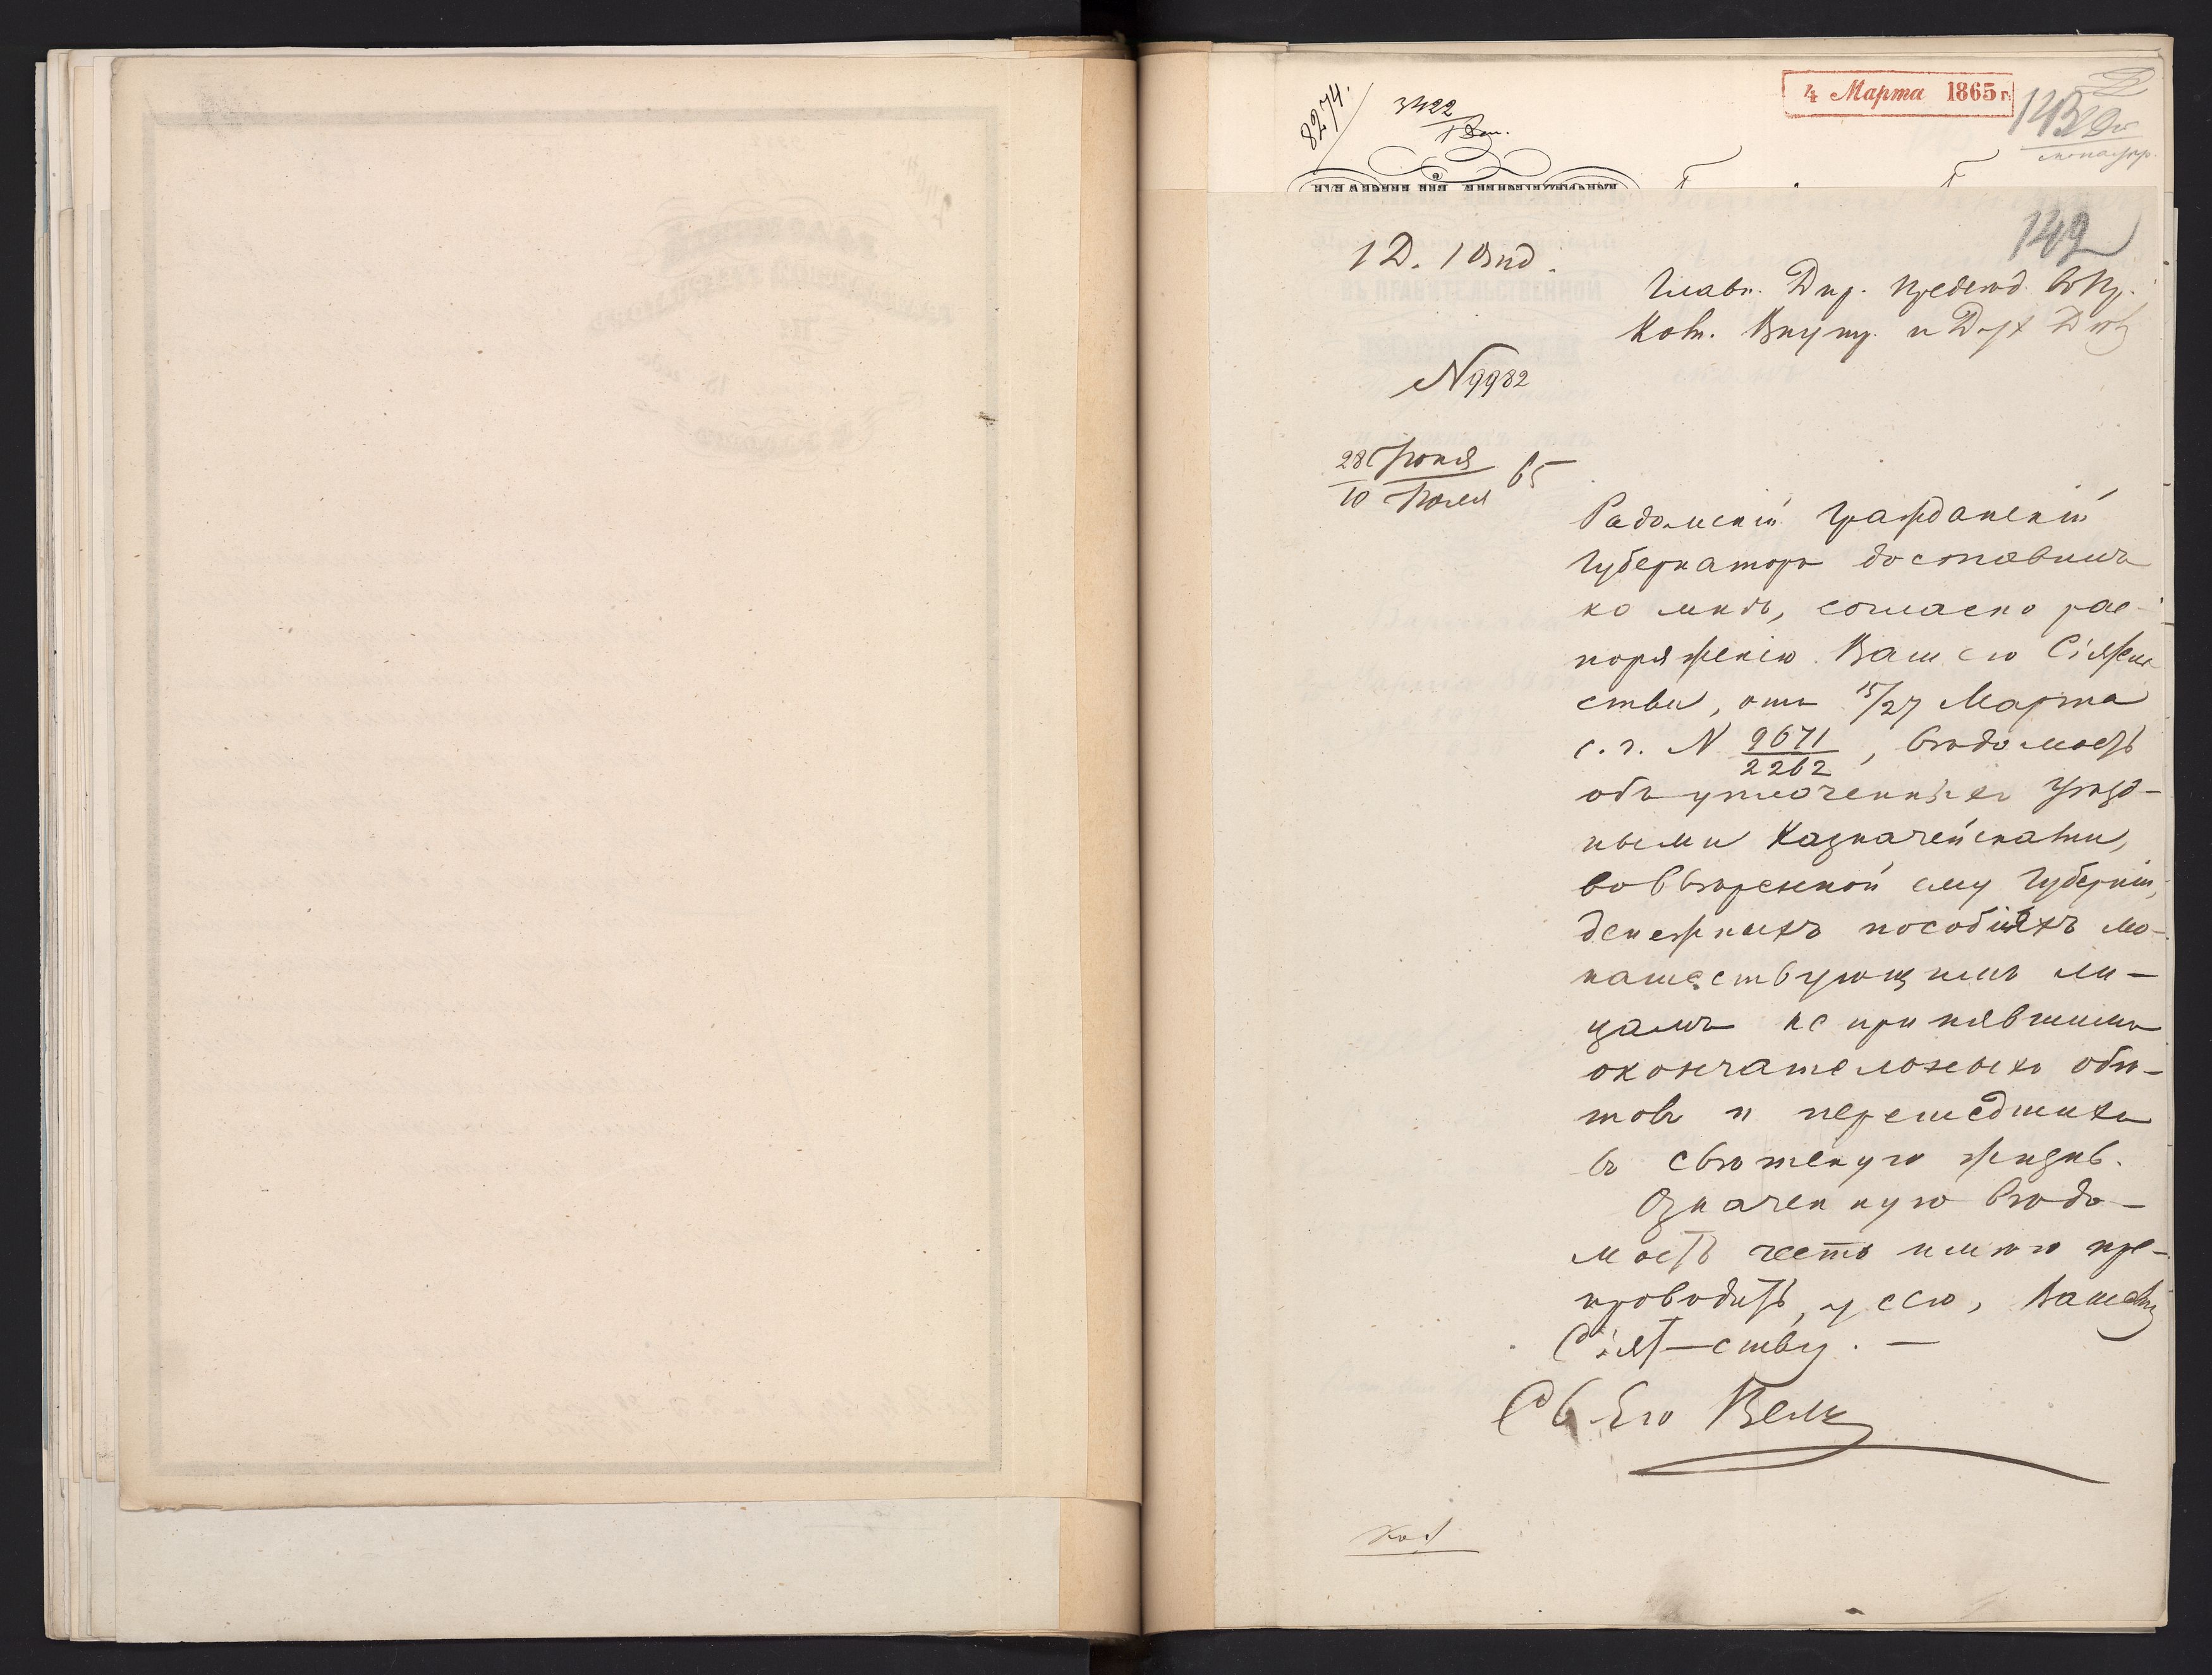 8274.
3422
4 Марта 1865 г.
143
142
1 Д. 1 Отд.
Главн. Дир. Предсѣд. въ Пр.
Ком. Внутр. и Дух Дѣлъ
N 9982
28 Іюня / 10 Іюля 65
Радомскій Гражданскій
Губернаторъ доставилъ
ко мнѣ, согласно рас-
поряженію Вашего Сіятель
ства, отъ 15/27 Марта
с. г. N 9671/2262, вѣдомость
объ уплоченныхъ Уѣзд-
ными Казначействами,
во ввѣренной ему Губерніи,
денежныхъ пособіяхъ мо-
нашествующимъ ли-
цамъ не принявшимъ
окончательныхъ обѣ-
товъ и перешедшихъ
въ свѣтскую жизнь.
Означенную вѣдо-
мость честь имѣю пре-
проводить, у сего, Вашему
Сіят-ству. —